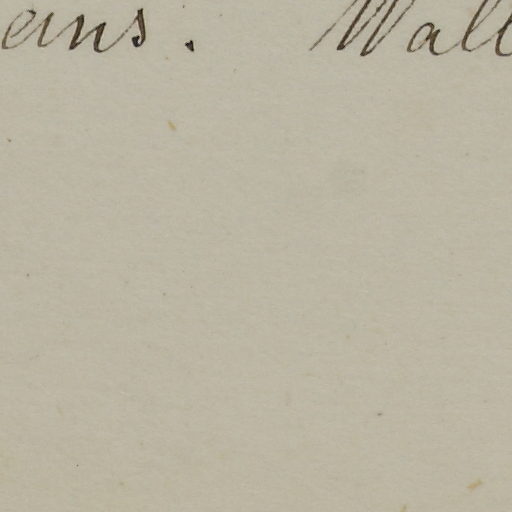 eins. Wall